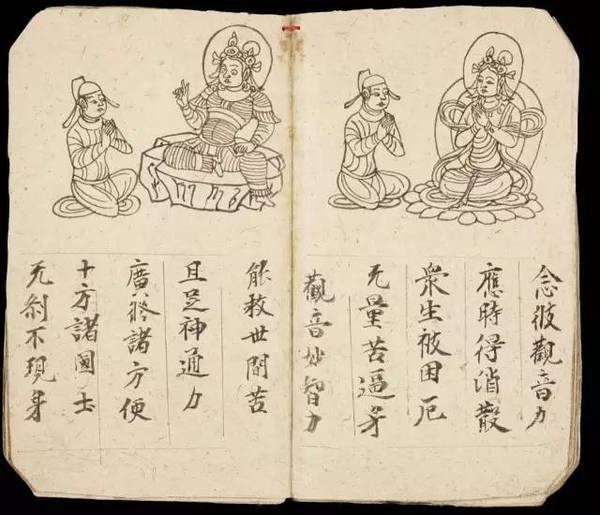 念彼觀音力
應時得消散
衆生被困厄
无量苦逼身
觀音妙智力
能救世間苦
且足神通力
廣修諸方便
十方諸國土
无刹不現身